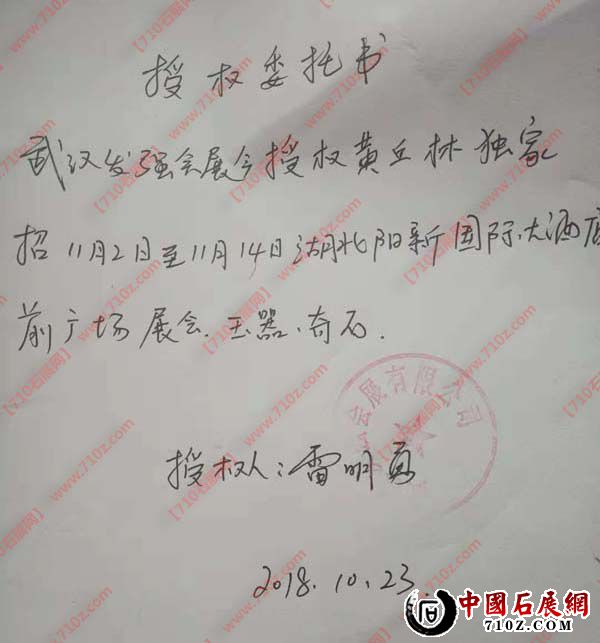 授权委托书
武汉发强会展今授权黄丘林独家
招11月2日至11月14日湖北阳新国际大酒店
前广场展会.玉器、奇石.
会展有限公司
授权人:雷明
2018.10.23.
中國石展網
710z.COM
【710石展网】www.710z.com